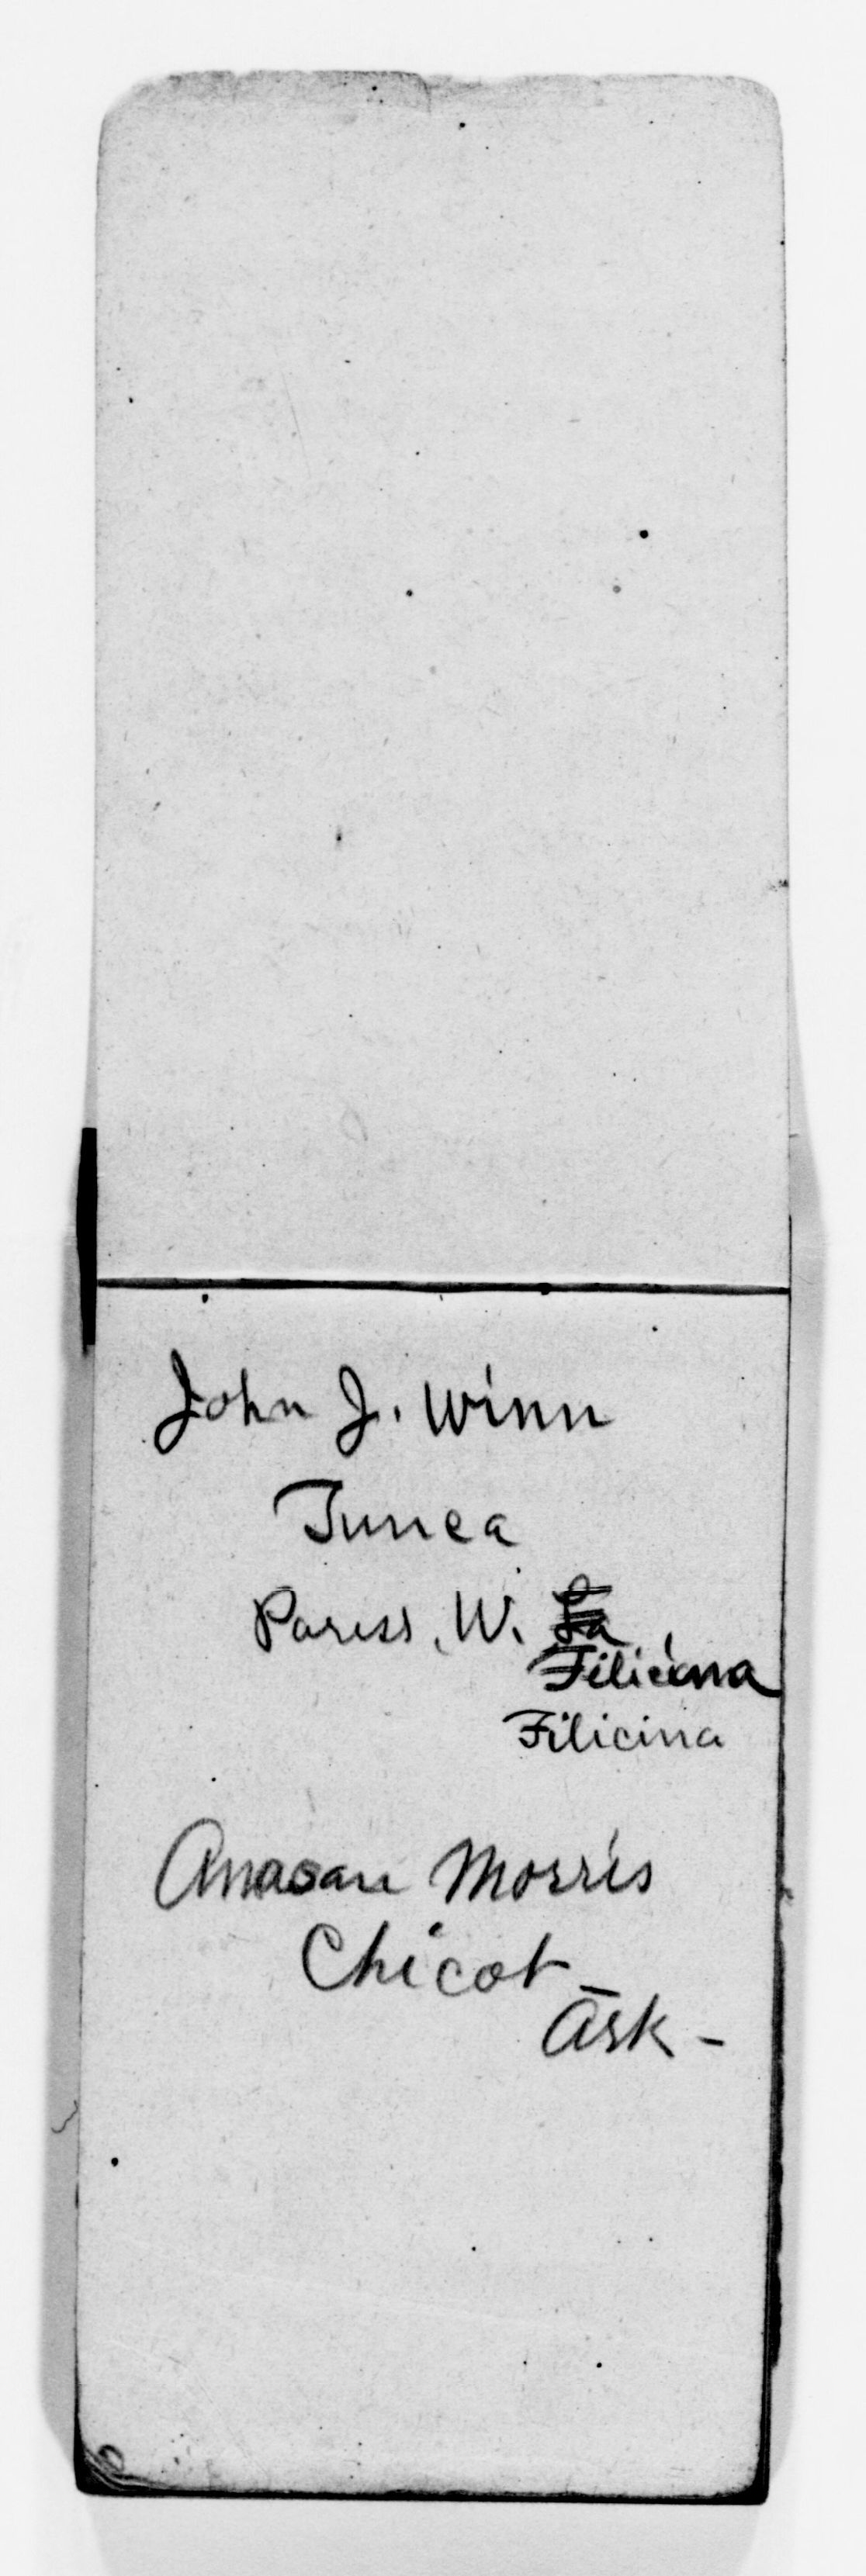 John J. Winn
Tunea
Pariss, W. La
Filicina
Filicina
Anasan Morris
Chicot
Ark -